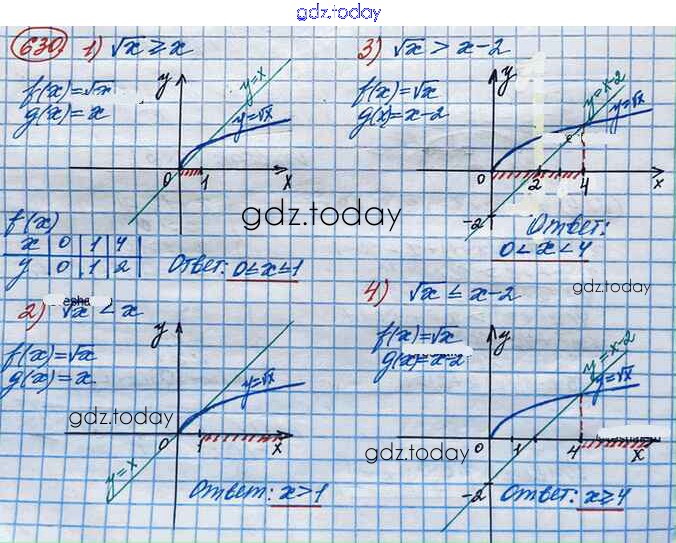 gdz.today
630.
1) √x ≥ x
f(x)=√x
g(x)=x
y
y=x
y=√x
0 1 x
f(x)
x | 0 | 1 | 4 |
y | 0 | 1 | 2 |
Ответ: 0≤x≤1
gdz.today
3) √x > x-2
f(x)=√x
g(x)=x-2
y
y=x-2
y=√x
0 2 4 x
-2
Ответ:
0<x<4
gdz.today
2) √x < x
esha
f(x)=√x
g(x)=x
y
y=√x
0 1 x
y=x
gdz.today
Ответ: x>1
4) √x ≤ x-2
f(x)=√x
g(x)=x-2
y
y=x-2
y=√x
0 1 4 x
-2
gdz.today
Ответ: x≥4